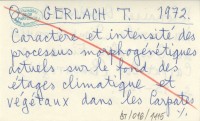 GERLACH T. 1972.
Caractère et intensité des
processus morphogénétiques
actuels sur le fond des
étages climatique et
végétaux dans les Carpates
bt/018/1115